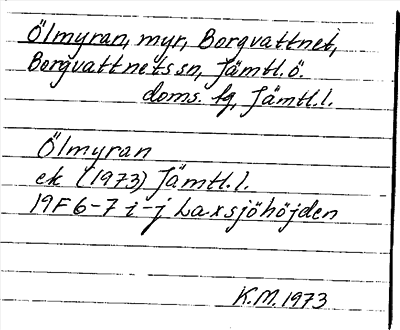 Ölmyran, myr, Borgvattnet,
Borgvattnets sn, Jämtl.ö.
doms. fg, Jämtl.l.
Ölmyran
ek (1973) Jämtl.l.
19F 6-7 i-j Laxsjöhöjden
K.M. 1973